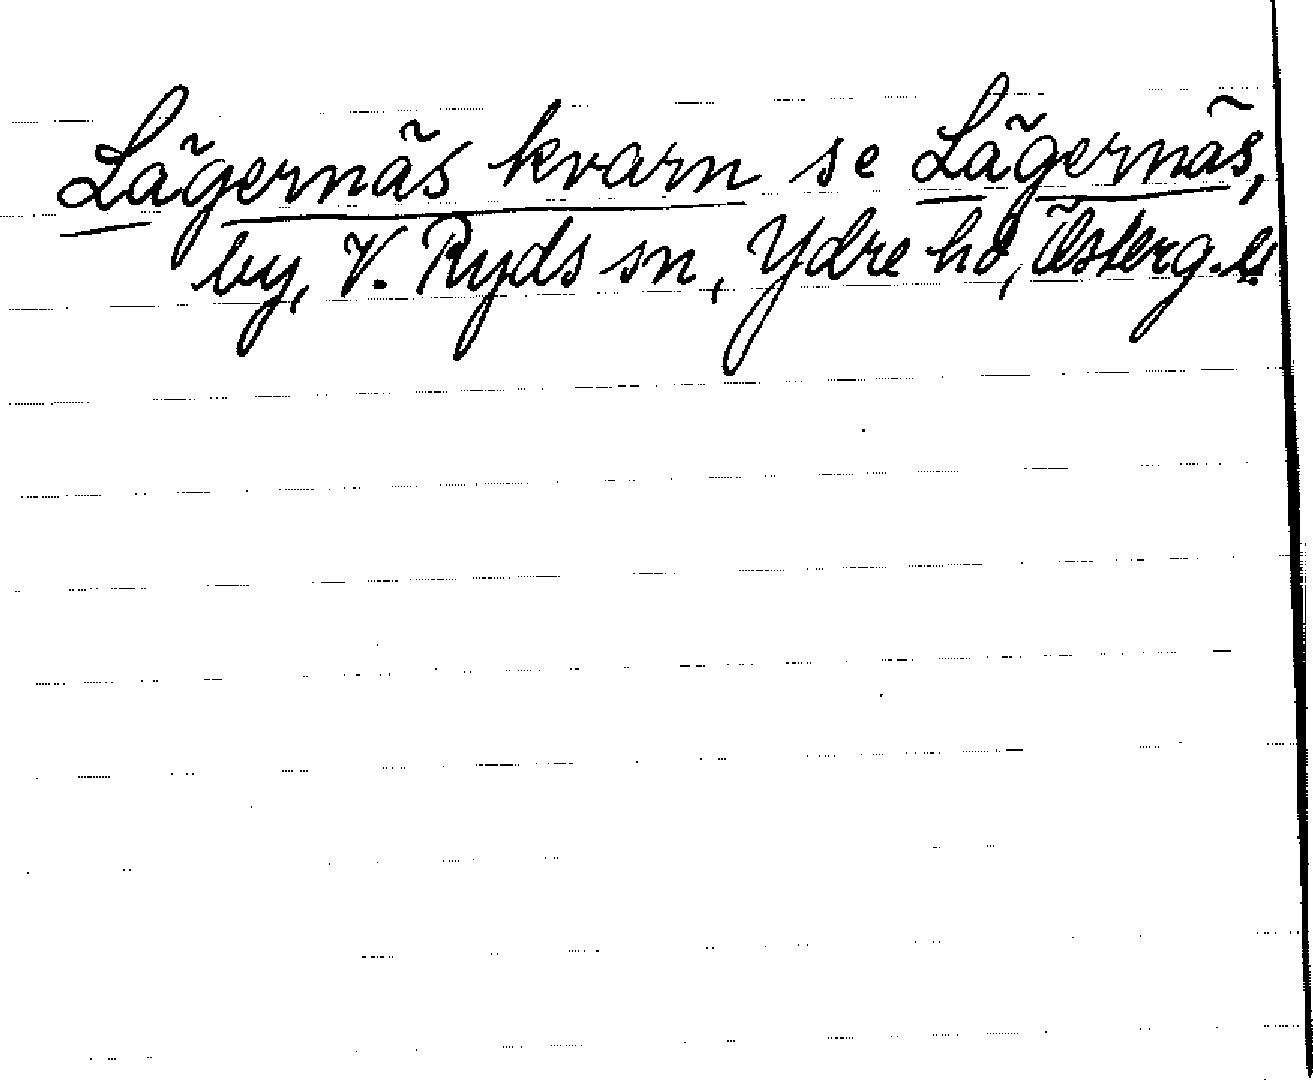 Lägernäs kvarn se Lägernäs,
by, V. Ryds sn, Ydre hd, Österg. l.